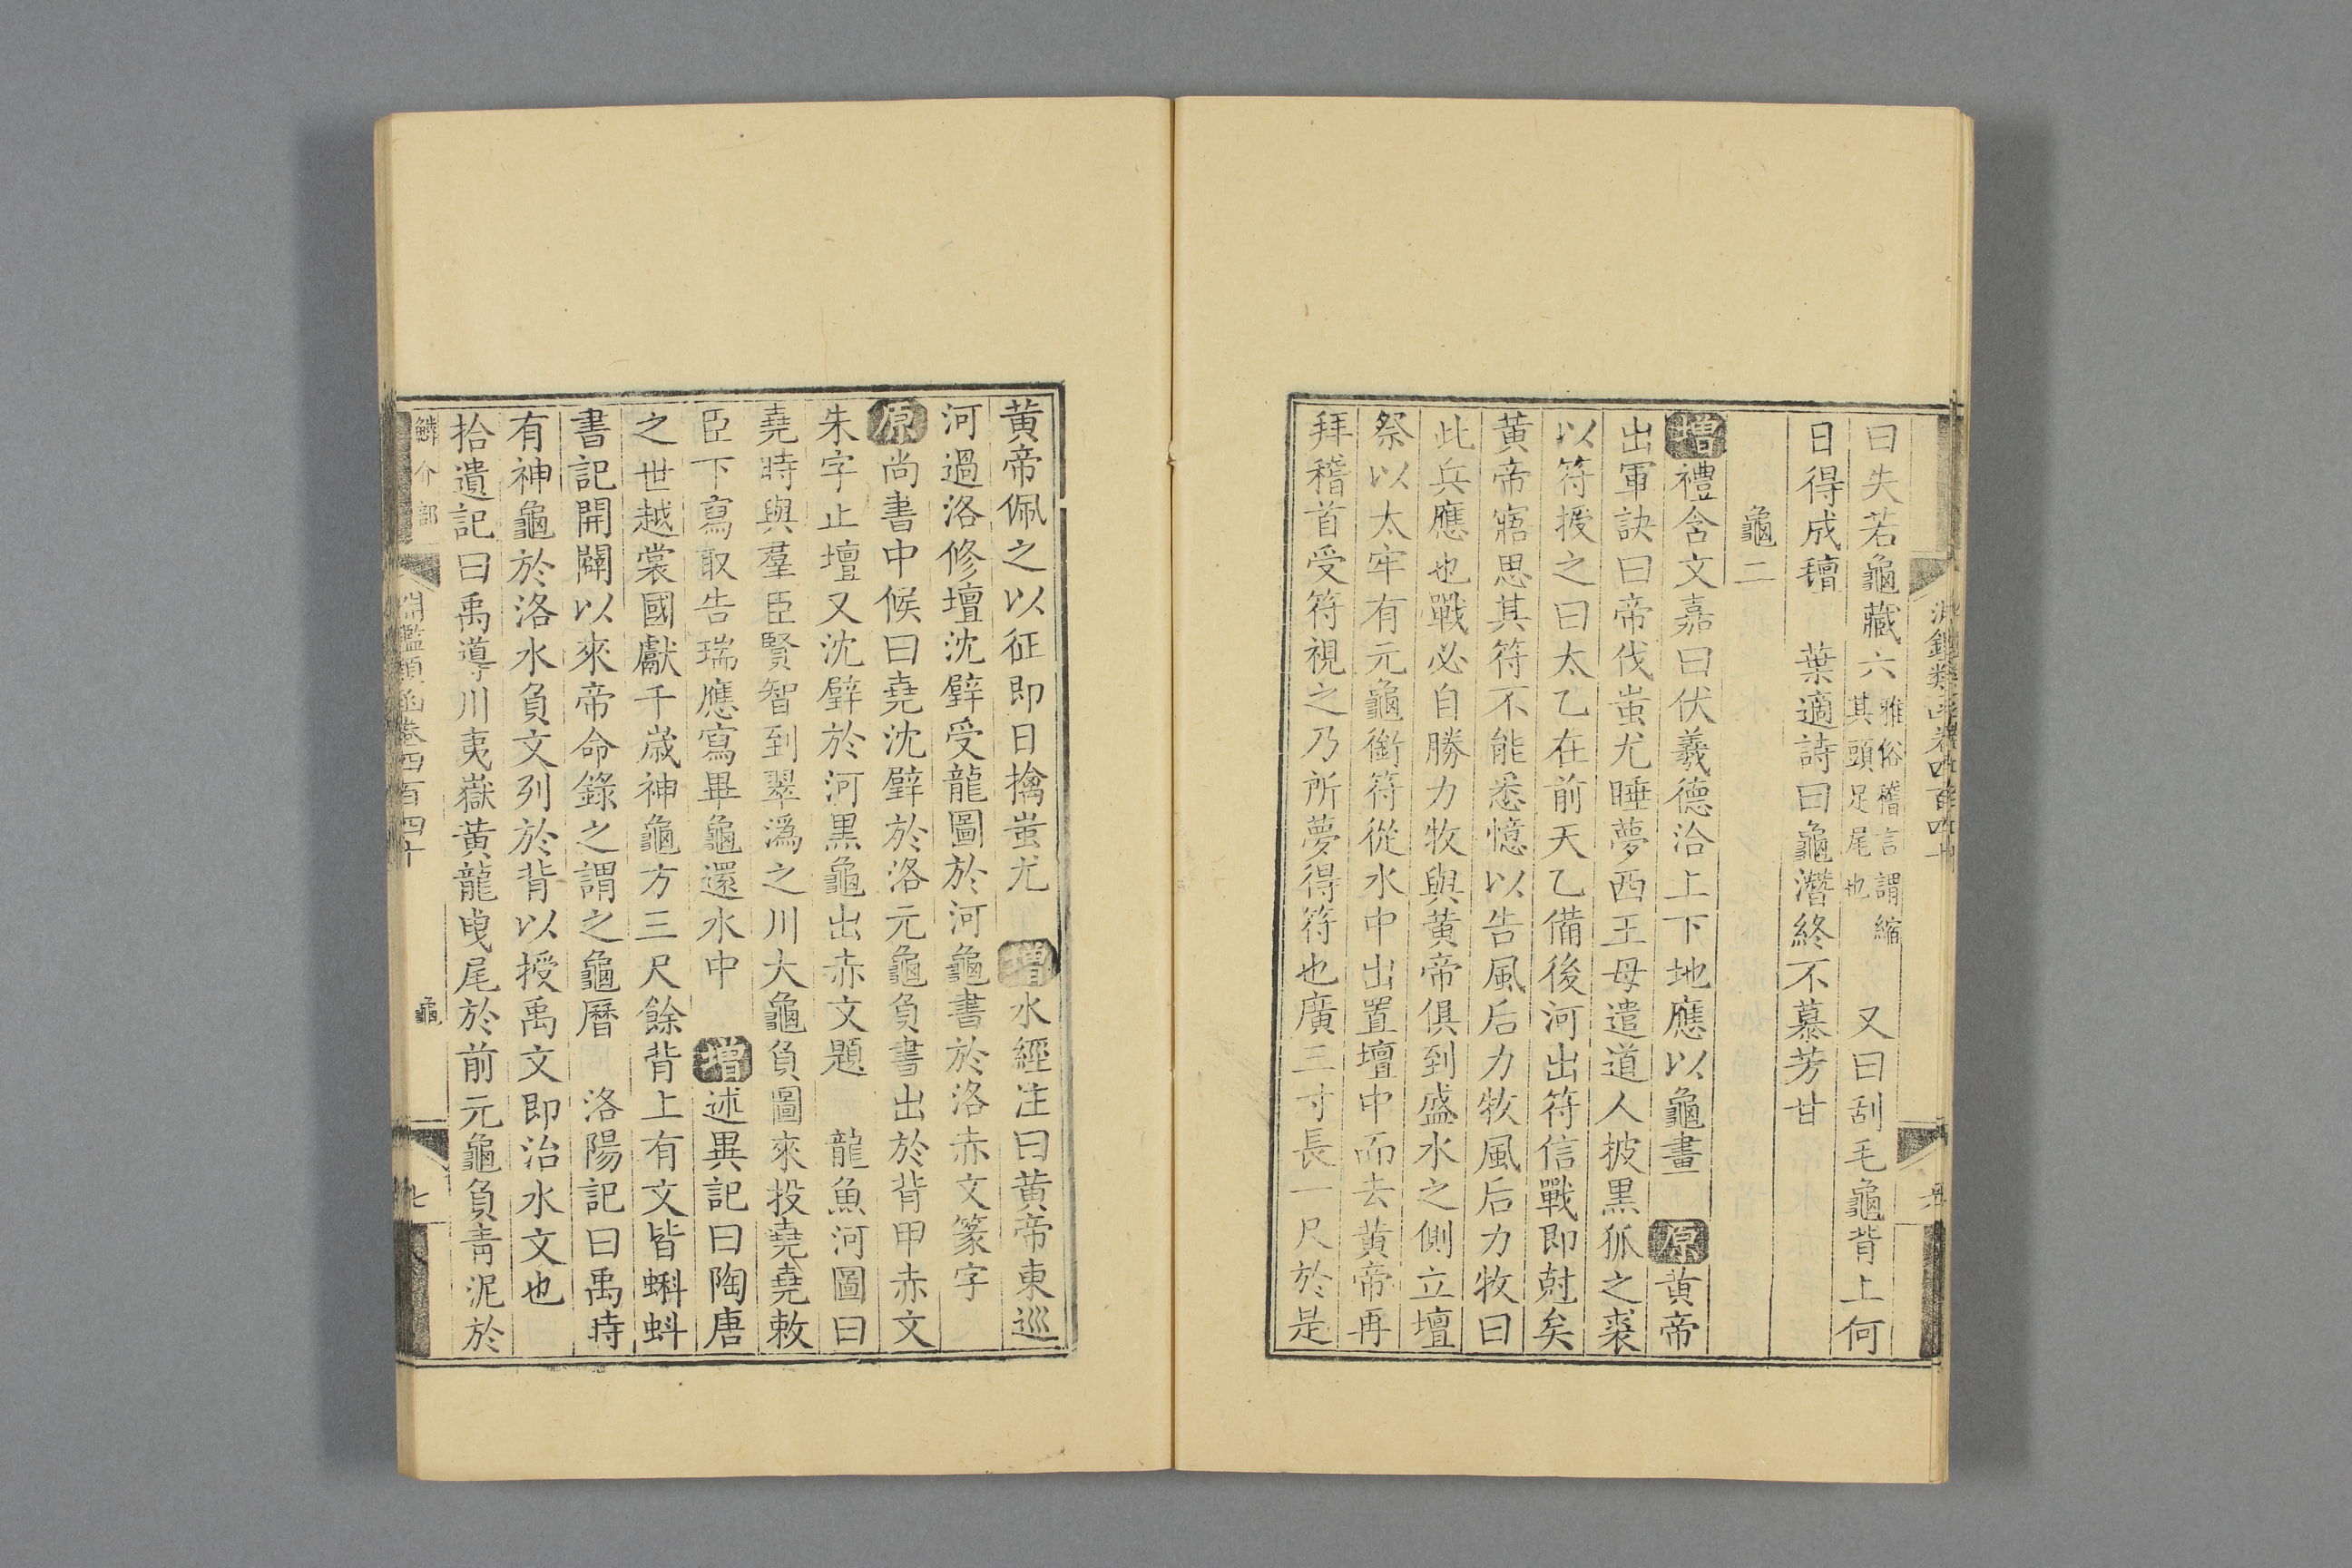 曰失若龜藏六雅俗稽言謂縮其頭足尾也　又曰刮毛龜背上何
日得成氊　葉適詩曰龜潛終不慕芳甘
龜二
增禮含文嘉曰伏羲德洽上下地應以龜畫　原黃帝
出軍訣曰帝伐蚩尤睡夢西王母遣道人披黑狐之裘
以符授之曰太乙在前天乙備後河出符信戰即尅矣
黃帝寤思其符不能悉憶以告風后力牧風后力牧曰
此兵應也戰必自勝力牧與黃帝俱到盛水之側立壇
祭以太牢有元龜銜符從水中出置壇中而去黃帝再
拜稽首受符視之乃所夢得符也廣三寸長一尺於是
黃帝佩之以征即日擒蚩尤　增水經注曰黃帝東巡
河過洛修壇沈璧受龍圖於河龜書於洛赤文篆字
原尚書中候曰堯沈璧於洛元龜負書出於背甲赤文
朱字止壇又沈璧於河黑龜出赤文題　龍魚河圖曰
堯時與羣臣賢智到翠潙之川大龜負圖來投堯堯敕
臣下寫取告瑞應寫畢龜還水中　增述異記曰陶唐
之世越裳國獻千歲神龜方三尺餘背上有文皆蝌蚪
書記開闢以來帝命錄之謂之龜曆　洛陽記曰禹時
有神龜於洛水負文列於背以授禹文即治水文也
拾遺記曰禹導川夷嶽黃龍曳尾於前元龜負青泥於
鱗介部　淵鑑類函卷四百四十　龜　七